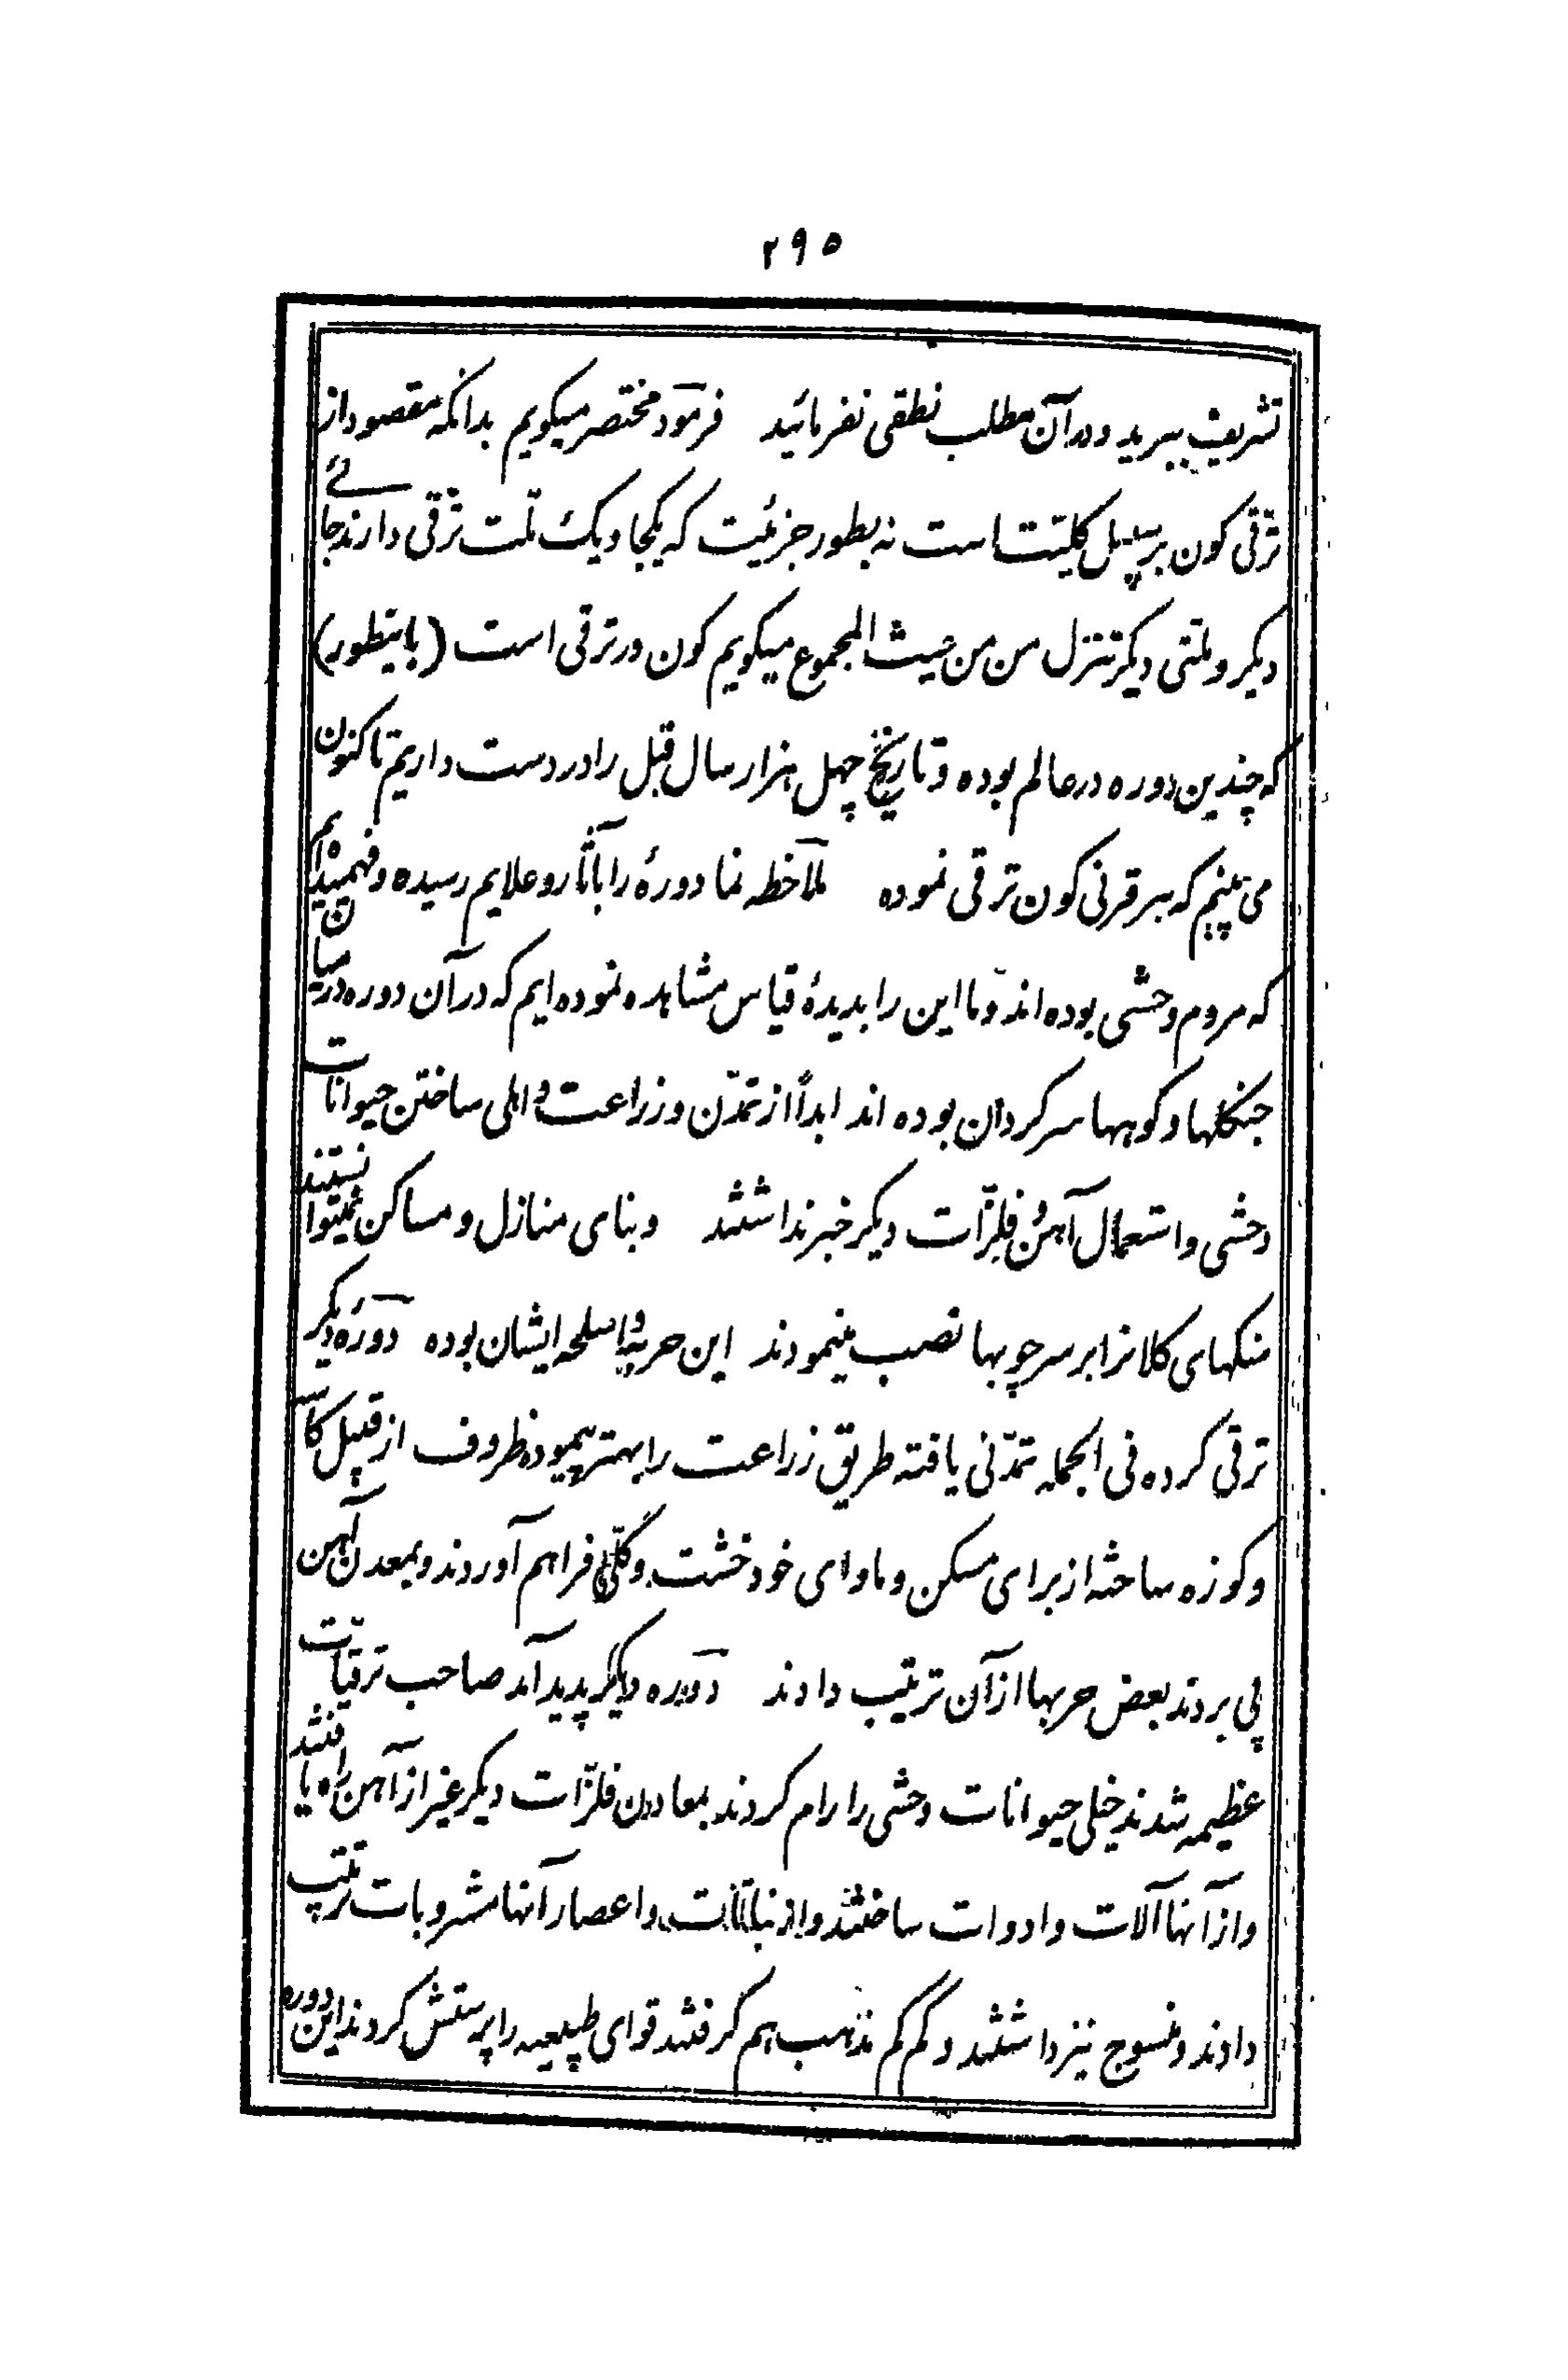 ۲۹۵
تشریف ببرید و در آن مطلب نطقی نفرمائید فرمود مختصر میکویم بدانکه مقصود از
ترقی کون بر سبیل کلیّت است نه بطور جزئیت که یکجا و یک ملّت ترقی دارند جائے
دیکر و ملتی دیکر تنزل من من حیث المجموع میکویم کون در ترقی است (باینطور)
که چندین دوره در عالم بوده و تاریخ چهل هزار سال قبل را در دست داریم تا کنون
می بینیم که بهر قرنی کون ترقی نموده ملاحظه نما دورهٔ را باآثار و علایم رسیده و فهمیده‌ایم
که مردم وحشی بوده اند و ما این را بدیدهٔ قیاس مشاهده نموده ایم که در آن دوره در میان
جنکلها و کوهها سرکردان بوده اند ابداً از تمدّن و زراعت و اهلی ساختن حیوانات
وحشی و استعمال آهن و فلزّات دیکر خبر نداشتند و بنای منازل و مساکن نمیتوانستند
سنکهای کلانرا بر سر چوبها نصب مینمودند این حربه و اسلحه ایشان بوده دورهٔ دیکر
ترقی کرده فی الجمله تمدّنی یافته طریق زراعت را بهتر پیموده ظروف از قبیل کاسه
و کوزه ساخته از برای مسکن و ماوای خود خشت و کلی فراهم آوردند و بمعدن آهن
پی بردند بعض حربها از آن ترتیب دادند دوره دیکر پدید آمد صاحب ترقیات
عظیمه شدند خیلی حیوانات وحشی را رام کردند بمعادن فلزّات دیکر غیر از آهن راه یافتند
و از آنها آلات و ادوات ساختند و از نباتات و اعصار آنها مشروبات ترتیب
دادند و منسوج نیز داشتند و کم کم مذهب هم کرفتند قوای طبیعیه را پرستش کردند این دوره